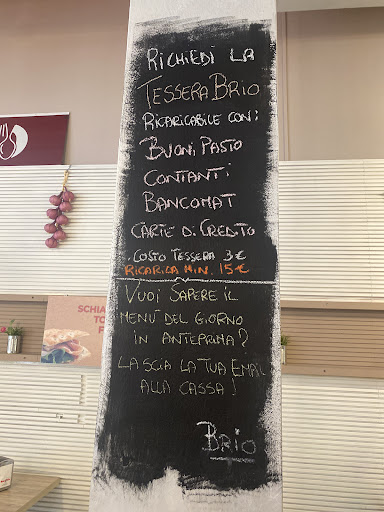 RICHIEDI LA
TESSERA BRIO
RICARICABILE CON:
BUONI PASTO
CONTANTI
BANCOMAT
CARTE DI CREDITO
. COSTO TESSERA 3€
RICARICA MIN. 15€
VUOI SAPERE IL
MENÙ DEL GIORNO
IN ANTEPRIMA?
LASCIA LA TUA EMAIL
ALLA CASSA!
BRIO
SCHIA
TO
F